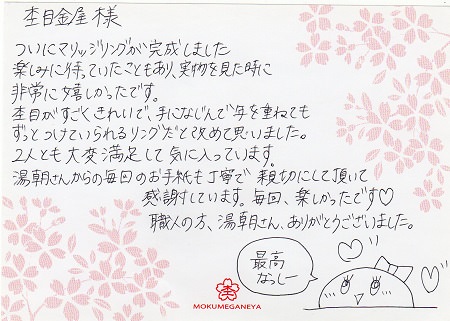 杢目金屋 様
ついにマリッジリングが完成しました
楽しみに待っていたこともあり、実物を見た時に
非常に嬉しかったです。
杢目がすごくきれいで、手になじんで年を重ねても
ずっとつけていられるリングだと改めて思いました。
2人とも大変満足して気に入っています。
湯朝さんからの毎回のお手紙も丁寧で親切にして頂いて
感謝しています。毎回、楽しかったです♡
職人の方、湯朝さん、ありがとうございました。
最高
なっしー
MOKUMEGANEYA